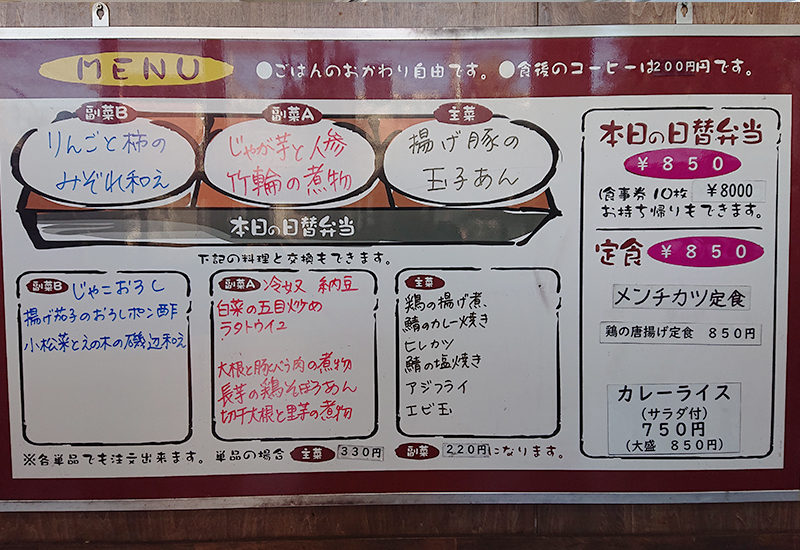 MENU
●ごはんのおかわり自由です。●食後のコーヒーは200円円です。
副菜B
りんごと柿の
みぞれ和え
副菜A
じゃが芋と人参
竹輪の煮物
主菜
揚げ豚の
玉子あん
本日の日替弁当
下記の料理と交換もできます。
副菜B じゃこおろし
揚げ茄子のおろしポン酢
小松菜とえの木の磯辺和え
副菜A 冷奴 納豆
白菜の五目炒め
ラタトウイユ
大根と豚バラ肉の煮物
長芋の鶏そぼろあん
切干大根と里芋の煮物
主菜
鶏の揚げ煮
鯖のカレー焼き
ヒレカツ
鯖の塩焼き
アジフライ
エビ玉
※各単品でも注文出来ます。 単品の場合 主菜 330円 副菜 220円になります。
本日の日替弁当
¥850
食事券10枚 ¥8000
お持ち帰りもできます。
定食 ¥850
メンチカツ定食
鶏の唐揚げ定食 850円
カレーライス
(サラダ付)
750円
(大盛 850円)